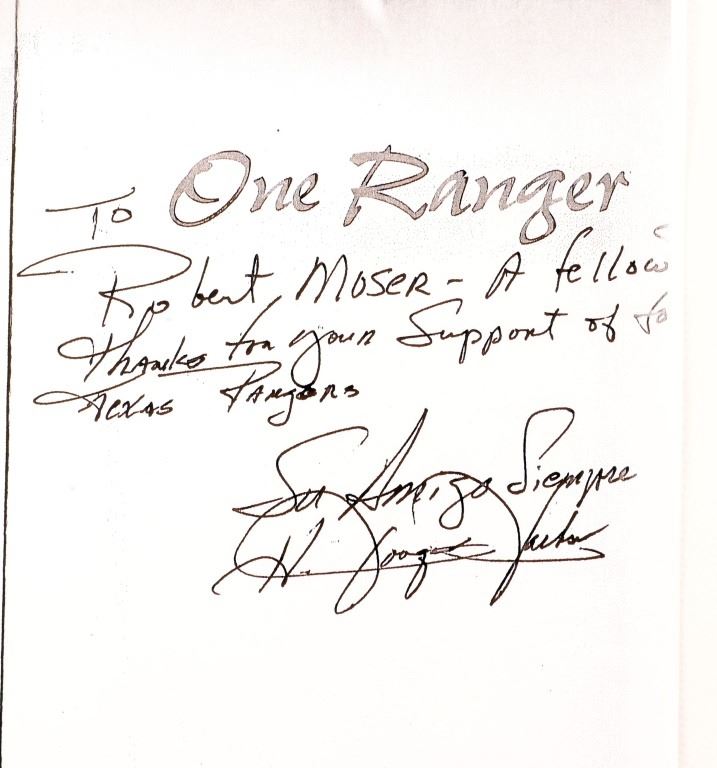 One Ranger
To
Robert Moser - A fellow
Thanks for your Support of
Texas Rangers
Su Amigo Siempre
H. Joaquin Jackson